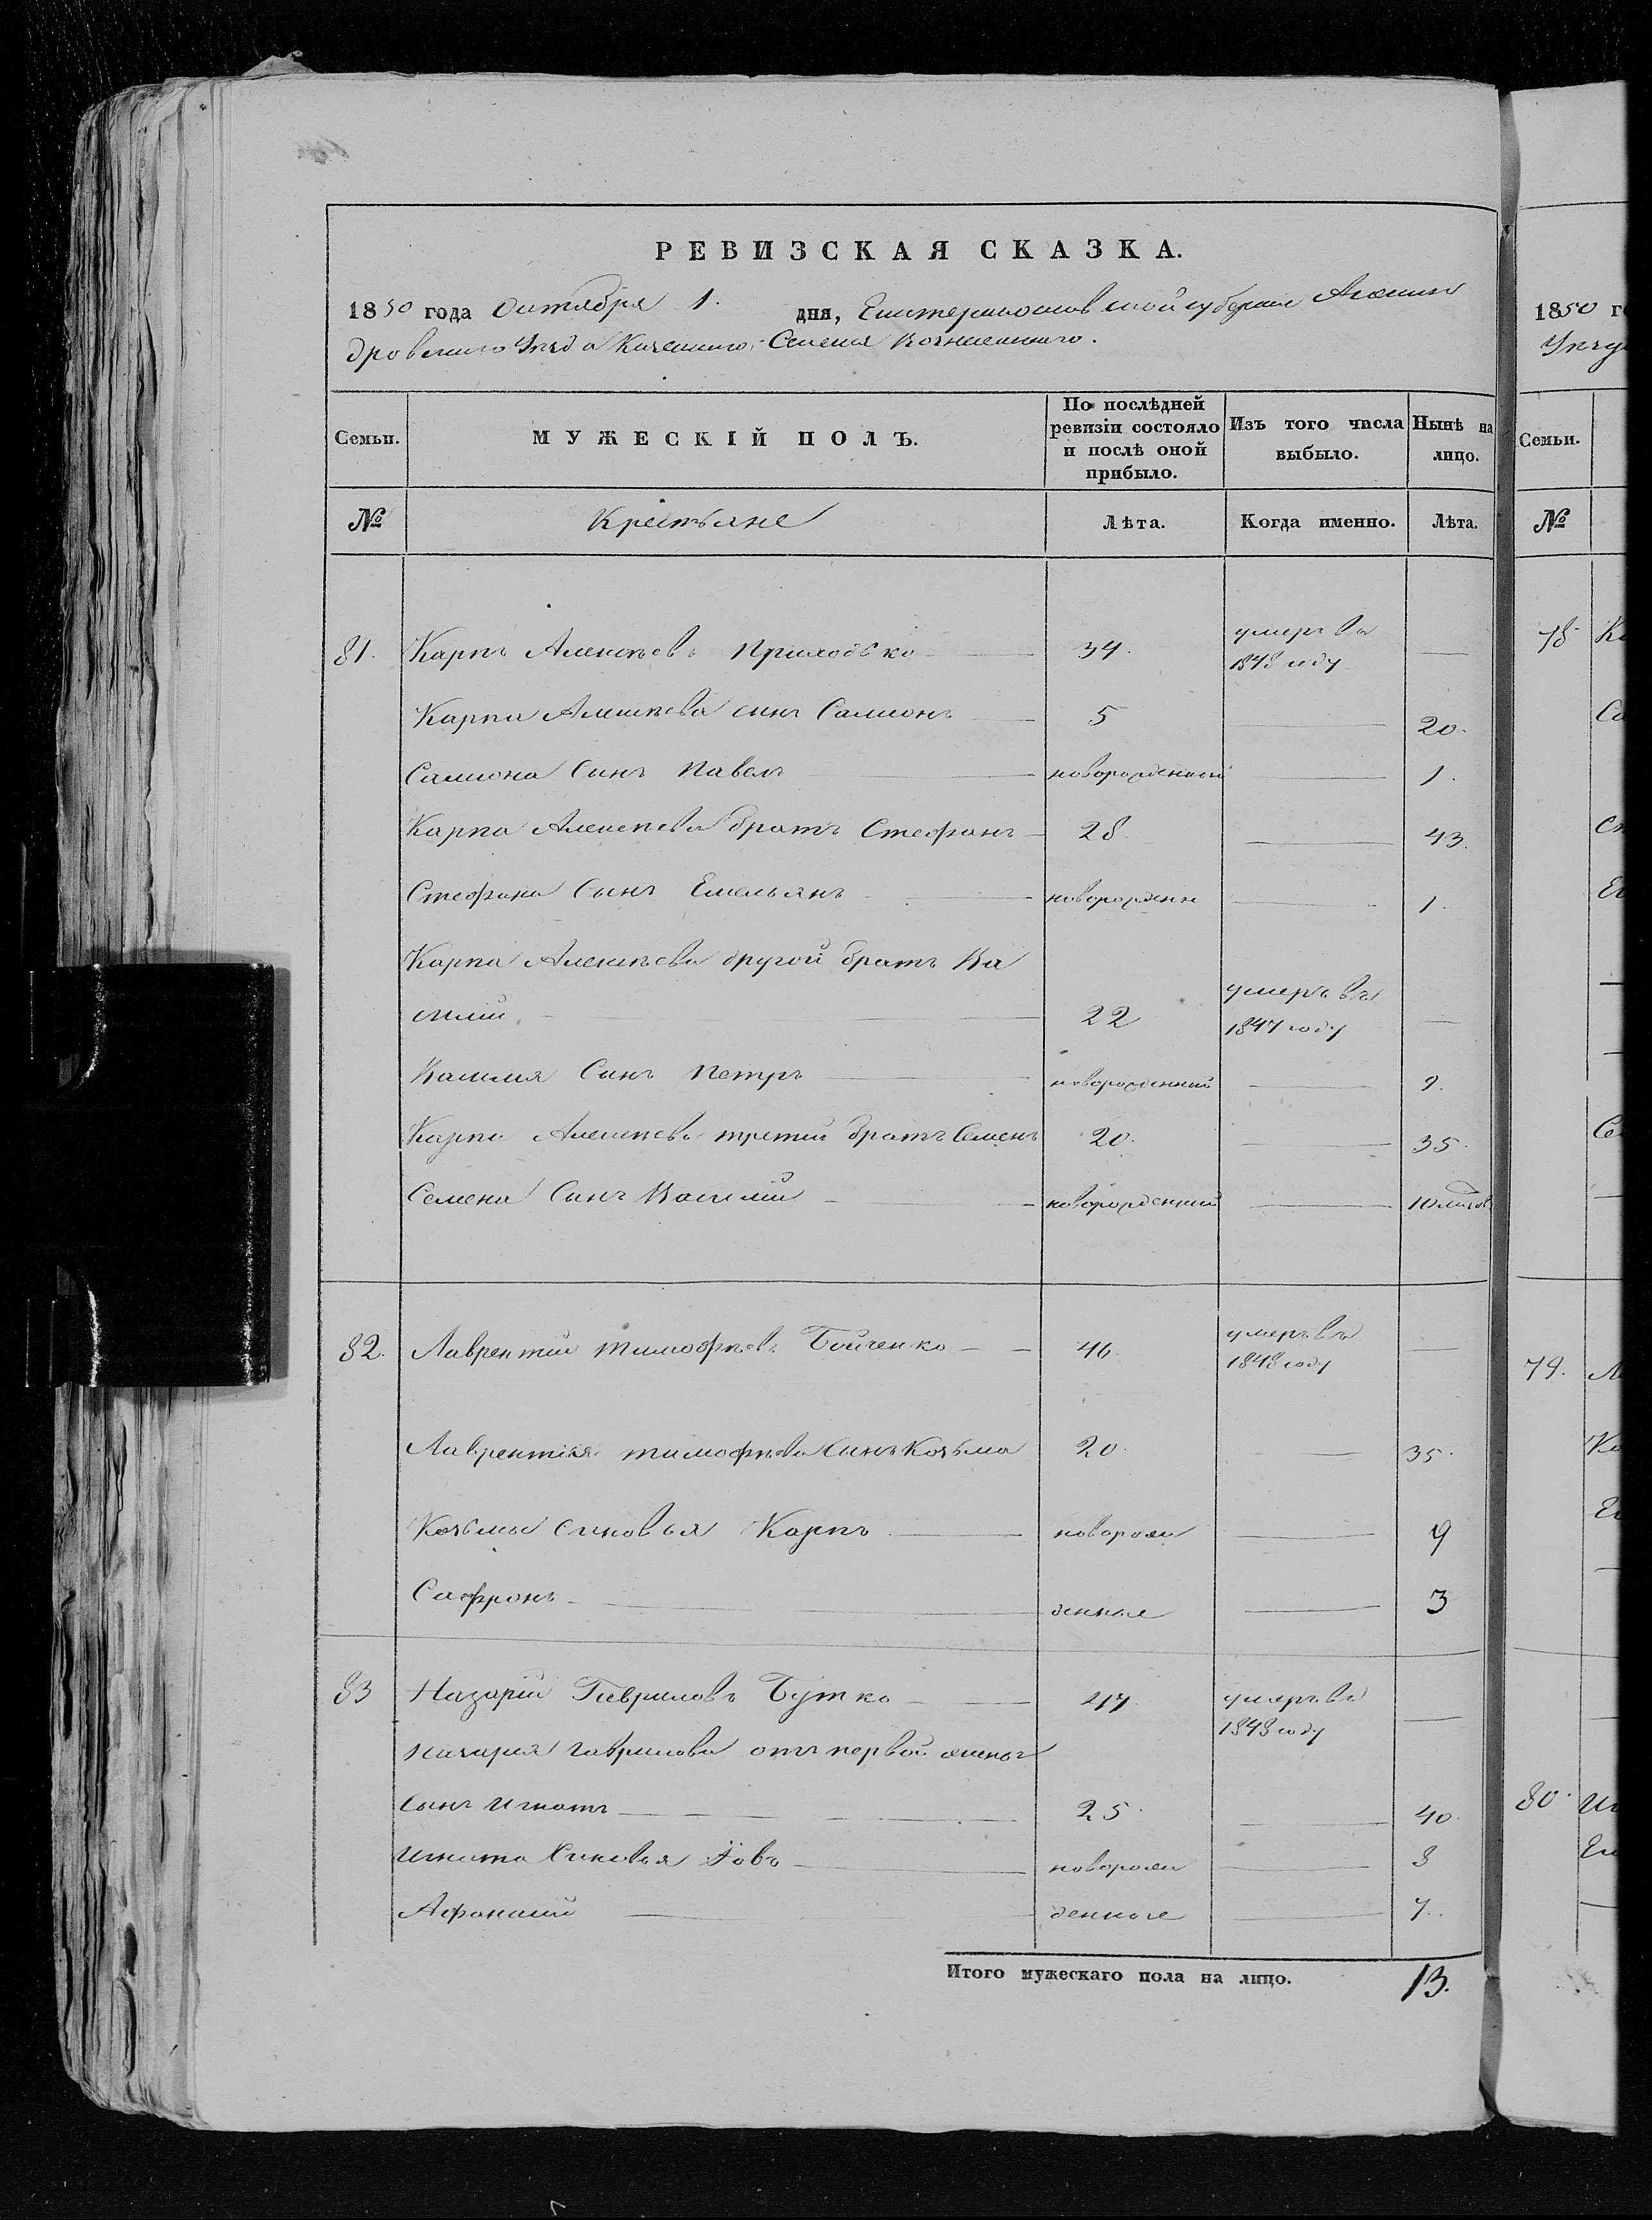 РЕВИЗСКАЯ СКАЗКА.
1850 года Октября 1. дня, Екатеринославской губернии Алексан
дровского Уезда Казенного Селения Вознесенского.
Семьи. МУЖЕСКІЙ ПОЛЪ. По послѣдней ревизіи состояло и послѣ оной прибыло. Изъ того числа выбыло. Нынѣ на лицо.
№ Крестьяне Лѣта. Когда именно. Лѣта.
81. Карпъ Алексѣевъ Приходько 34. умеръ въ 1848 году —
Карпа Алексѣева синъ Самионъ 5 — 20.
Самиона Синъ Павелъ новорожденный — 1.
Карпа Алексѣева братъ Стефанъ 28. — 43.
Стефана Сынъ Емельянъ новорожденн — 1.
Карпа Алексѣева другой братъ Ва
силій 22 умеръ въ 1847 году —
Василия Синъ Петръ новорожденний — 9.
Карпа Алексѣева третий братъ Семенъ 20. — 35.
Семена Синъ Василій новорожденний — 10
82. Лаврентий Тимофѣевъ Бойченко 46. умеръ въ 1848 году —
Лаврентія Тимофѣева Синъ Козьма 20. — 35.
Козьмы синовья Карпъ новорож — 9
Сафронъ денные — 3
83 Назарій Гавриловъ Бутко 47. умеръ въ 1848 году —
Назария Гаврилова отъ первой жены
Сынъ Игнатъ 25. — 40.
Игната Синовья Іовъ новорож — 8
Афанасий денные — 7.
Итого мужескаго пола на лицо. 13.
1850 г
Семьи.
№
78
79.
80.